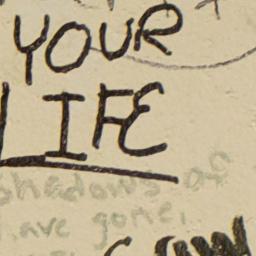 YOUR
LIFE
shadows of
gone,